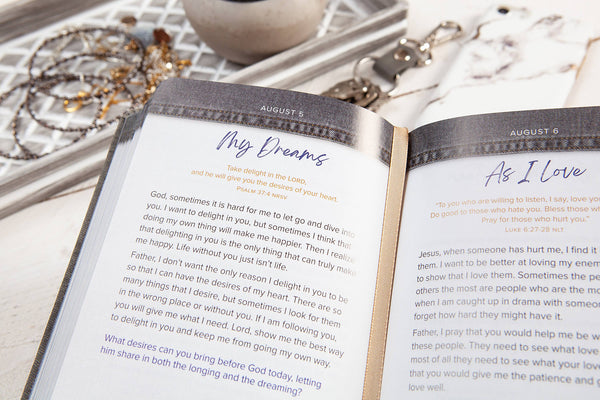 AUGUST 5
My Dreams
Take delight in the LORD,
and he will give you the desires of your heart.
PSALM 37:4 NASV
God, sometimes it is hard for me to let go and dive into
you. I want to delight in you, but sometimes I think that
doing my own thing will make me happier. Then I realize
that delighting in you is the only thing that can truly make
me happy. Life without you just isn't life.
Father, I don't want the only reason I delight in you to be
so that I can have the desires of my heart. There are so
many things that I desire, but sometimes I look for them
in the wrong place or without you. If I am following you,
you will give me what I need. Lord, show me the best way
to delight in you and keep me from going my own way.
What desires can you bring before God today, letting
him share in both the longing and the dreaming?
AUGUST 6
As I Love
"To you who are willing to listen, I say, love you
Do good to those who hate you. Bless those w
Pray for those who hurt you."
LUKE 6:27-28 NLT
Jesus, when someone has hurt me, I find it
them. I want to be better at loving my enem
to show that I love them. Sometimes the pe
others the most are people who are the mo
when I am caught up in drama with someon
forget how hard they might have it.
Father, I pray that you would help me be w
these people. They need to see what love
most of all they need to see what your love
that you would give me the patience and g
love well.